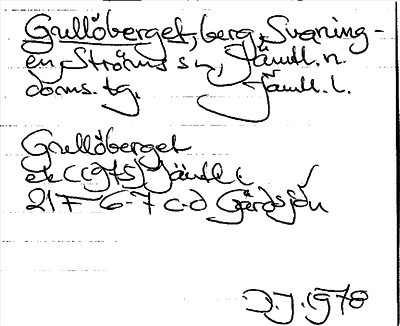 Grellöberget, berg, Svaning-
en, Ströms sn, Jämtl. n.
doms. tg. Jämtl. l.
Grellöberget
ek (GfS) Jämtl. l.
21 F 6-7 c-d Gärdsjön
D.J. 1978